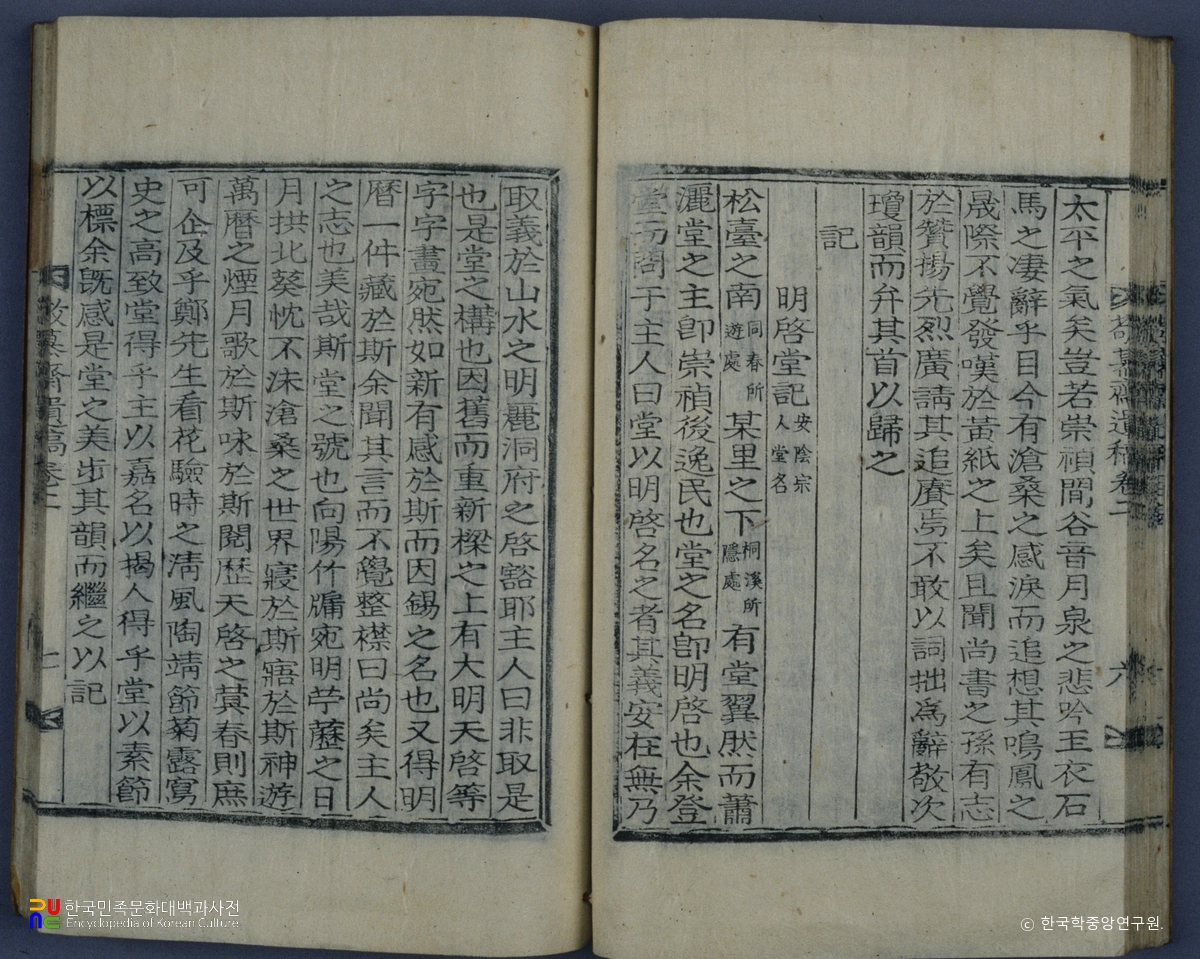 太平之氣矣豈若崇禎間谷音月泉之悲吟玉衣石
馬之凄辭乎目今有滄桑之感淚而追想其鳴鳳之
晟際不覺發嘆於黃紙之上矣且聞尚書之孫有志
於贊揚先烈廣請其追賡焉不敢以詞拙爲辭敬次
瓊韻而弁其首以歸之
記
明啓堂記 安陰宗人堂名
松臺之南 同春所遊處 某里之下 桐溪所隱處 有堂翼然而蕭
灑堂之主卽崇禎後逸民也堂之名卽明啓也余登
堂而問于主人曰堂以明啓名之者其義安在無乃
取義於山水之明麗洞府之啓豁耶主人曰非取是
也是堂之構也因舊而重新樑之上有大明天啓等
字字畫宛然如新有感於斯而因錫之名也又得明
曆一件藏於斯余聞其言而不覺整襟曰尚矣主人
之志也美哉斯堂之號也向陽竹牖宛明之日
月拱北葵忱不沬滄桑之世界寢於斯寤於斯神遊
萬曆之煙月歌於斯咏於斯閱歷天啓之蓂春則庶
可企及乎鄭先生看花驗時之淸風陶靖節菊露寓
史之高致堂得乎主以嘉名以揭人得乎堂以素節
以標余旣感是堂之美步其韻而繼之以記
慕齋遺稿卷二
六
七
한국민족문화대백과사전
Encyclopedia of Korean Culture
ⓒ 한국학중앙연구원.